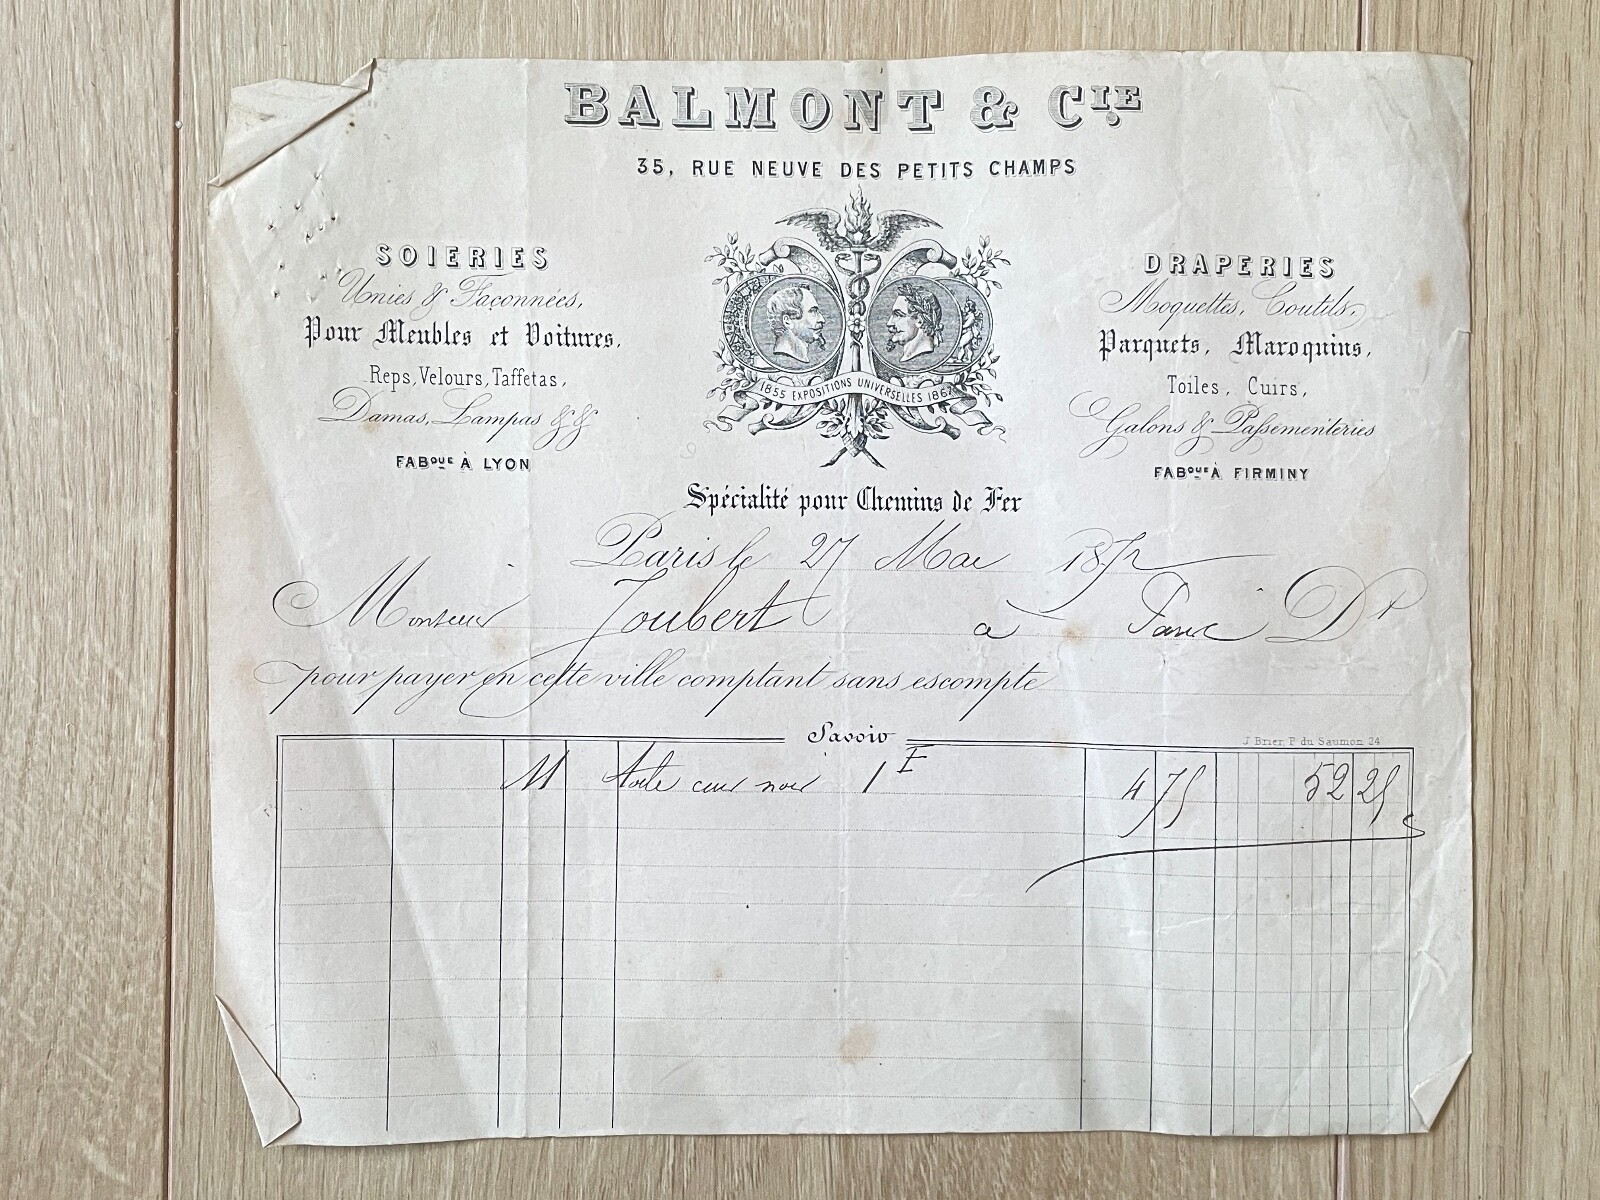 BALMONT & CIE
35, RUE NEUVE DES PETITS CHAMPS
SOIERIES
Unies & Façonnées,
Pour Meubles et Voitures,
Reps, Velours, Taffetas,
Damas, Lampas &&
FABQUE À LYON
1855 EXPOSITIONS UNIVERSELLES 1867
DRAPERIES
Moquettes, Coutils,
Parquets, Maroquins,
Toiles, Cuirs,
Galons & Passementeries
FABQUE À FIRMINY
Spécialité pour Chemins de Fer
Paris le 27 Mai 1872
Monsieur Joubert à Paris Dt
pour payer en cette ville comptant sans escompte
Savoir
J. Brier, P. du Saumon 24
11 toile cuir noir 1 F 4 75 52 25